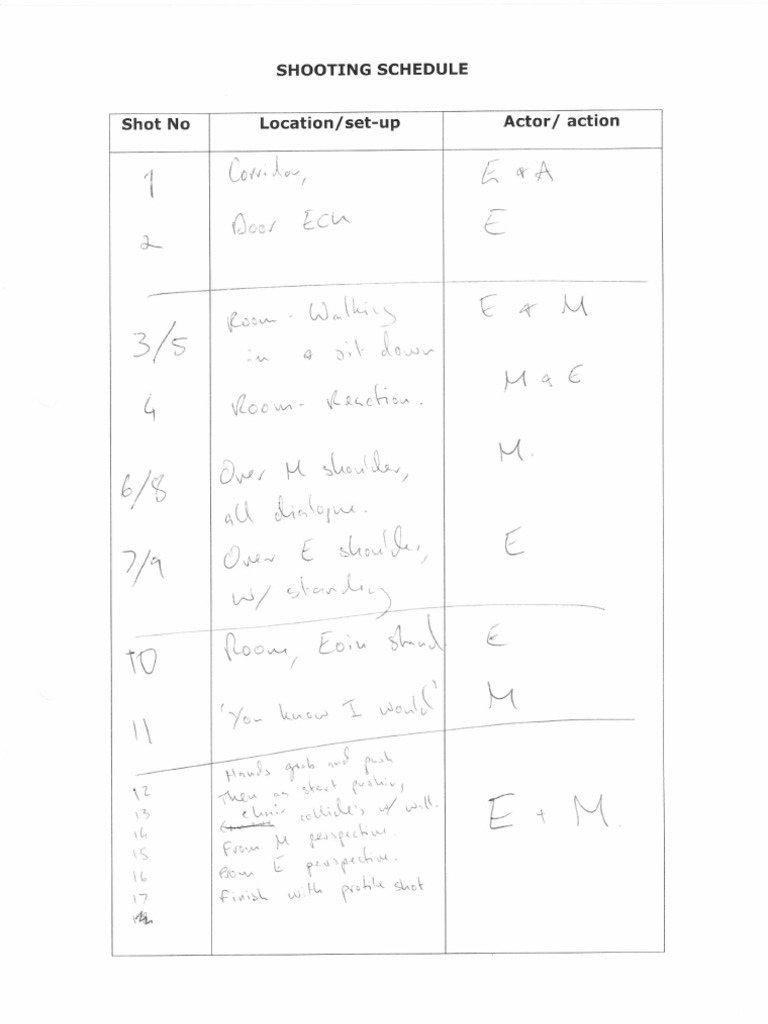 SHOOTING SCHEDULE
Shot No Location/set-up Actor/ action
1 Corridor, E & A
2 Door ECU E
3/5 Room - Walking E & M
in & sit down
4 Room - Reaction. M & E
6/8 Over M shoulder, M.
all dialogue.
7/9 Over E shoulder, E
w/ standing
10 Room, Eoin stand E
11 'You know I would' M
12 Hands grab and push
13 Then on start pushing,
14 chair collides w/ wall. E + M.
15 From M perspective.
16 From E perspective.
17 Finish with profile shot